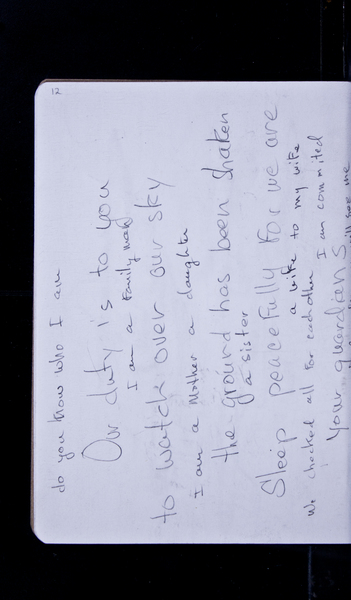 12
do you know who I am
Our duty is to you
I am a Family man
to watch over our sky
I am a Mother a daughter
the ground has been shaken
a sister
Sleep peacefully For we are
a wife to my wife
We checked all for eachother I am commited
Your guardians